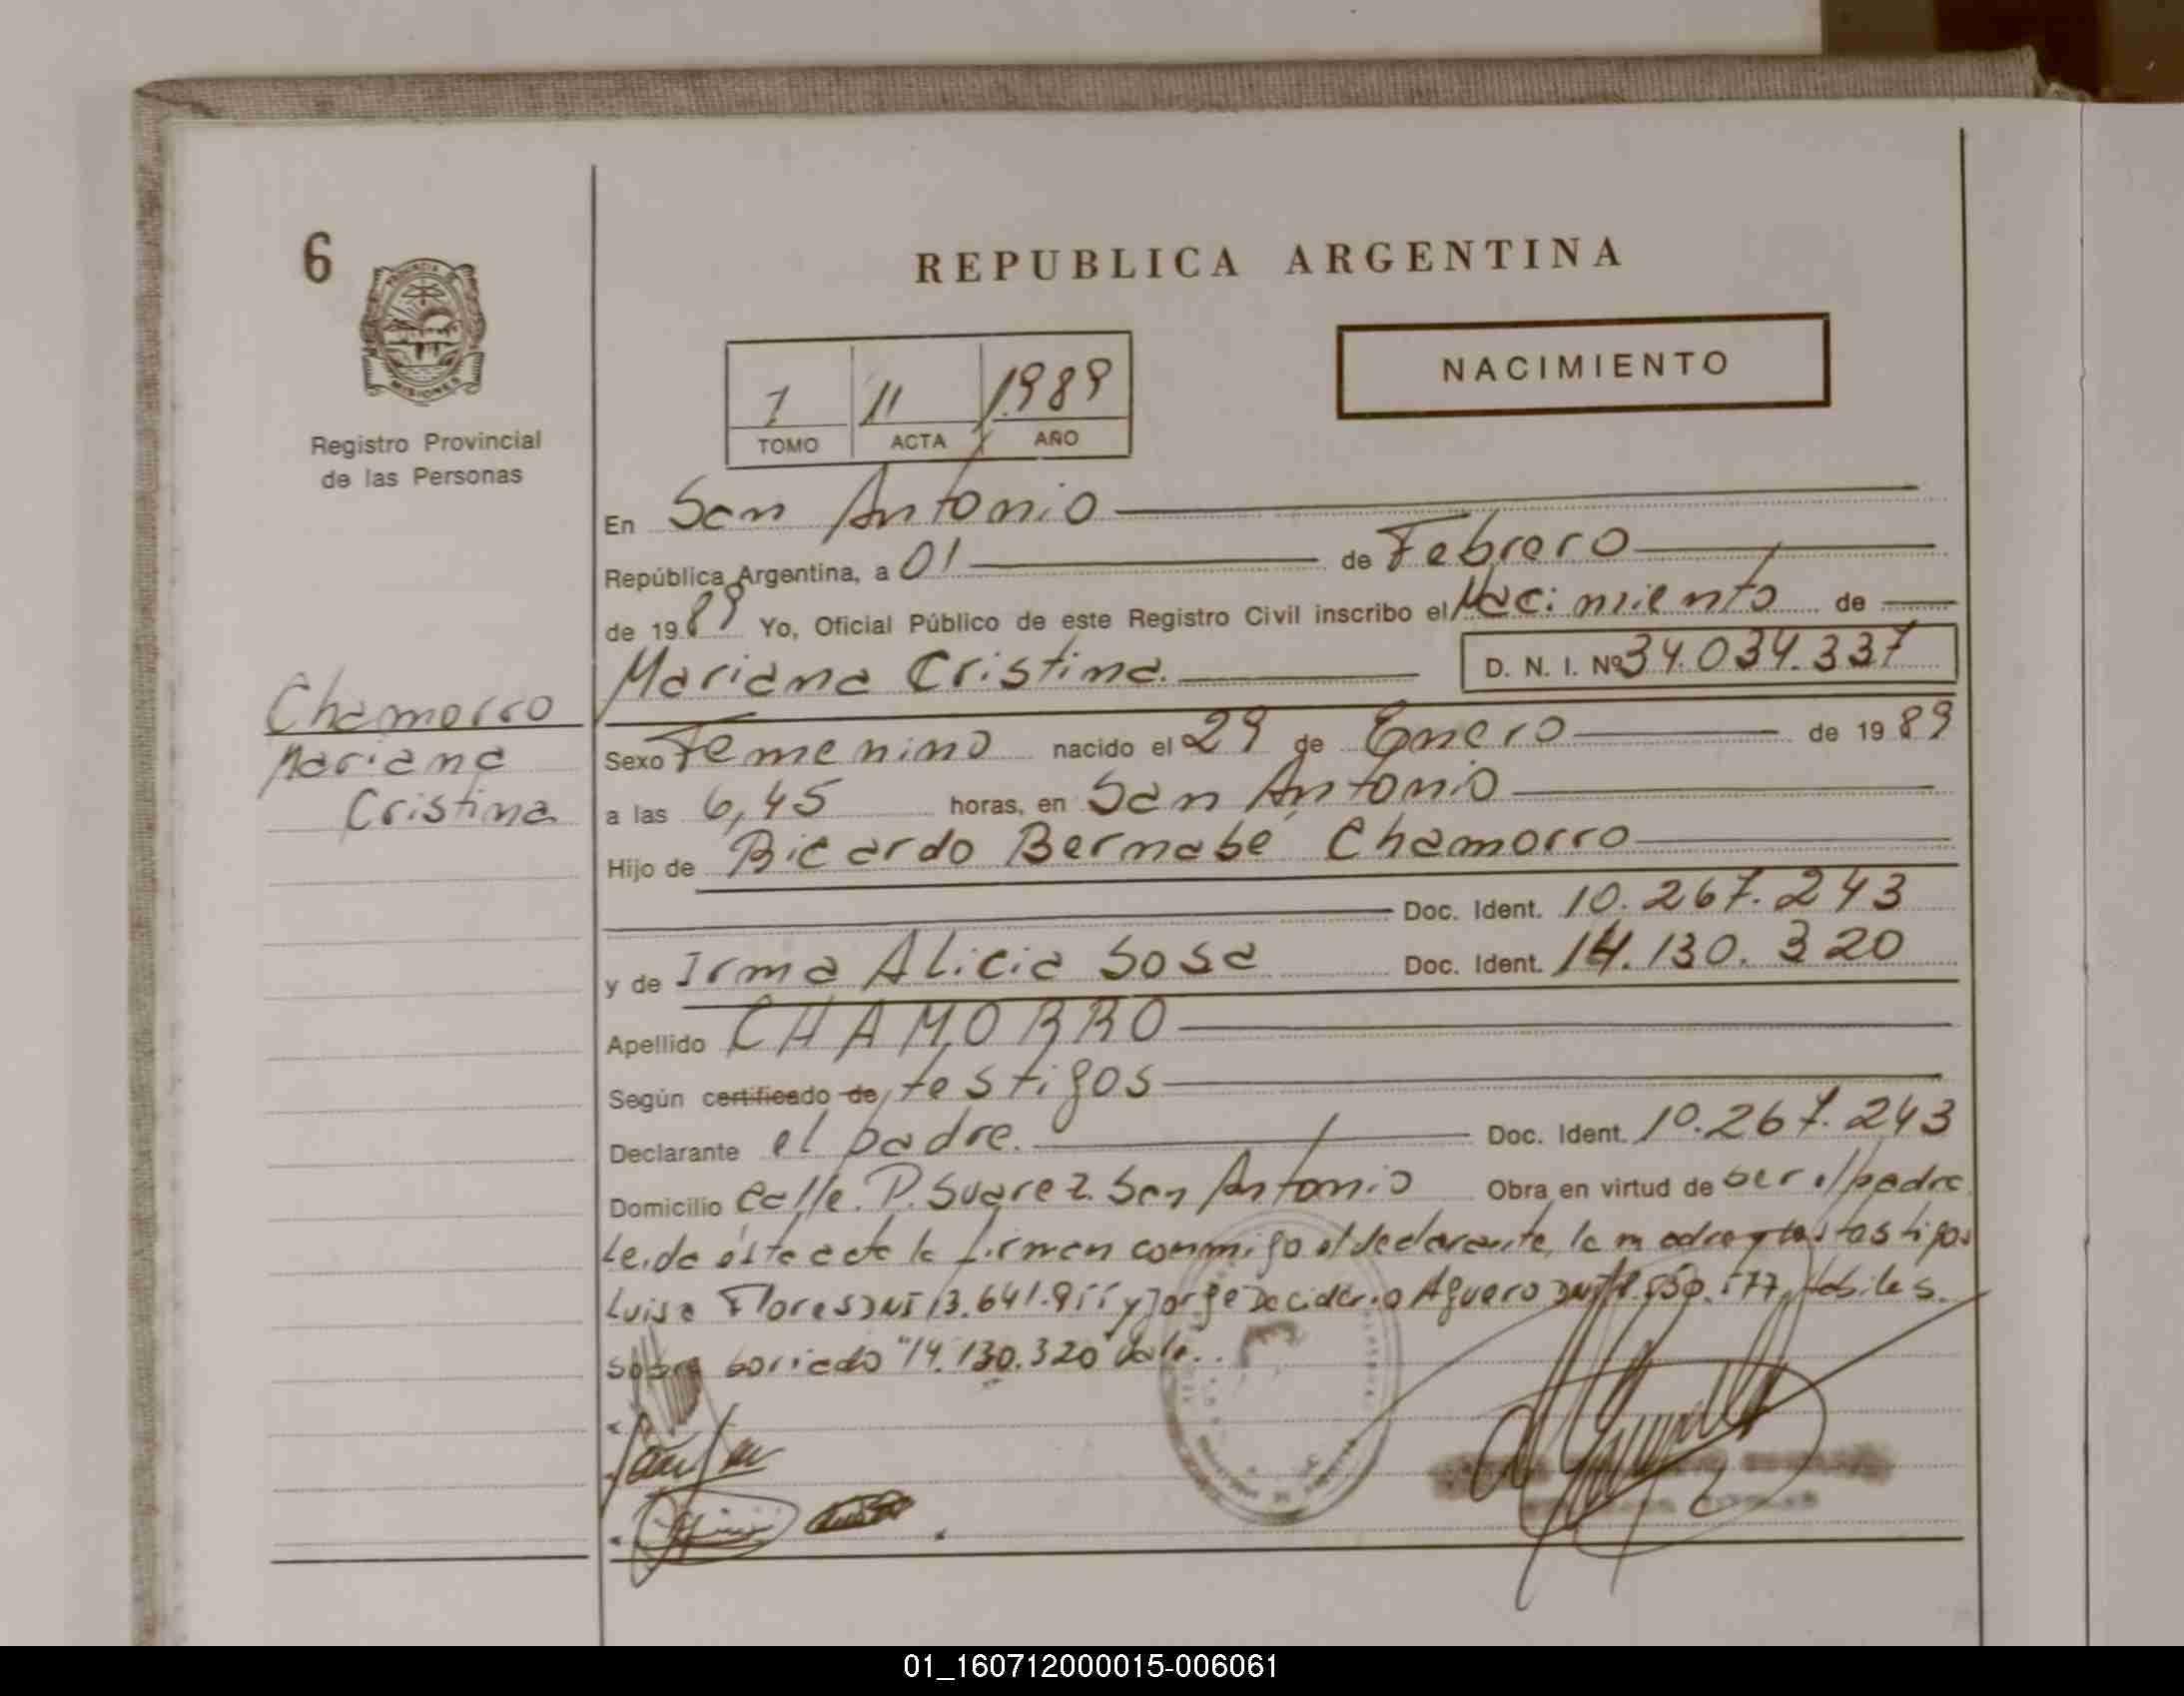 6
PROVINCIA DE
MISIONES
Registro Provincial
de las Personas
Chamorro
Mariana
Cristina
REPUBLICA ARGENTINA
NACIMIENTO
1 11 1989
TOMO ACTA AÑO
En San Antonio
República Argentina, a 01 de Febrero
de 1989 Yo, Oficial Público de este Registro Civil inscribo el Nacimiento de
Mariana Cristina. D. N. I. Nº 34.034.337
Sexo Femenino nacido el 29 de Enero de 1989
a las 6,45 horas, en San Antonio
Hijo de Ricardo Bernabé Chamorro
Doc. Ident. 10.267.243
y de Irma Alicia Sosa Doc. Ident. 14.130.320
Apellido CHAMORRO
Según certificado de testigos
Declarante el padre. Doc. Ident. 10.267.243
Domicilio Calle. P. Suarez. San Antonio Obra en virtud de ser el padre
Leida ésta acta la firman conmigo el declarante, la madre y los testigos
Luisa Flores DNI 13.641. y Jorge Deciderio Aguero DNI habiles.
sobre borrado "14.130.320" Vale.
01_160712000015-006061